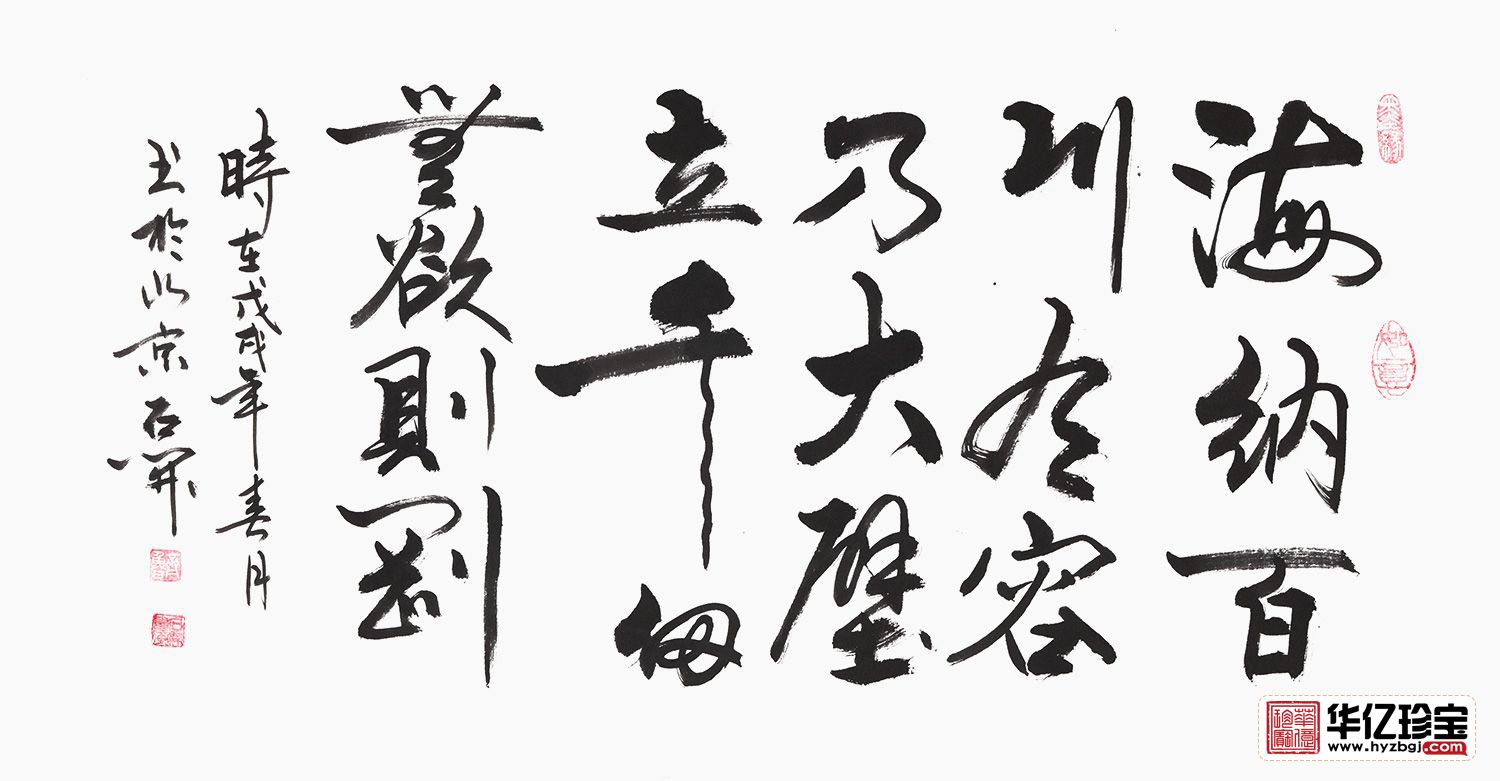 海納百
川有容
乃大壁
立千仞
無欲則剛
時在戊戌年春月
书於北京石開
如意
华亿珍宝
www.hyzbgj.com